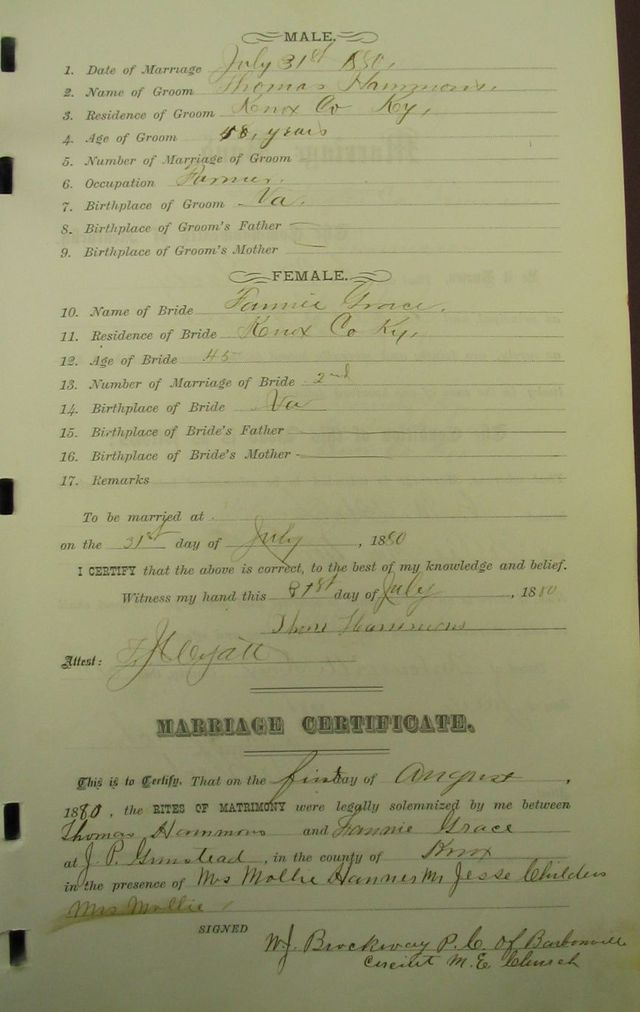 MALE.
1. Date of Marriage July 31st 1880,
2. Name of Groom Thomas Hammons,
3. Residence of Groom Knox Co Ky,
4. Age of Groom 58, years
5. Number of Marriage of Groom
6. Occupation Farmer.
7. Birthplace of Groom Va.
8. Birthplace of Groom's Father
9. Birthplace of Groom's Mother
FEMALE.
10. Name of Bride Fannie Grace.
11. Residence of Bride Knox Co Ky,
12. Age of Bride 45
13. Number of Marriage of Bride 2nd
14. Birthplace of Bride Va
15. Birthplace of Bride's Father
16. Birthplace of Bride's Mother
17. Remarks
To be married at
on the 31st day of July, 1880
I CERTIFY that the above is correct, to the best of my knowledge and belief.
Witness my hand this 31st day of July, 1880
Thos Hammons
Attest: Wyatt
MARRIAGE CERTIFICATE.
This is to Certify. That on the first day of August,
1880, the RITES OF MATRIMONY were legally solemnized by me between
Thomas Hammons and Fannie Grace
at J. P. Gunstead, in the county of Knox
in the presence of Mrs Mollie Hanner Mr Jesse Childers
Mrs Mollie
SIGNED
W.J. Brockway P. C. Of Barbourville
Circuit M. E. Church